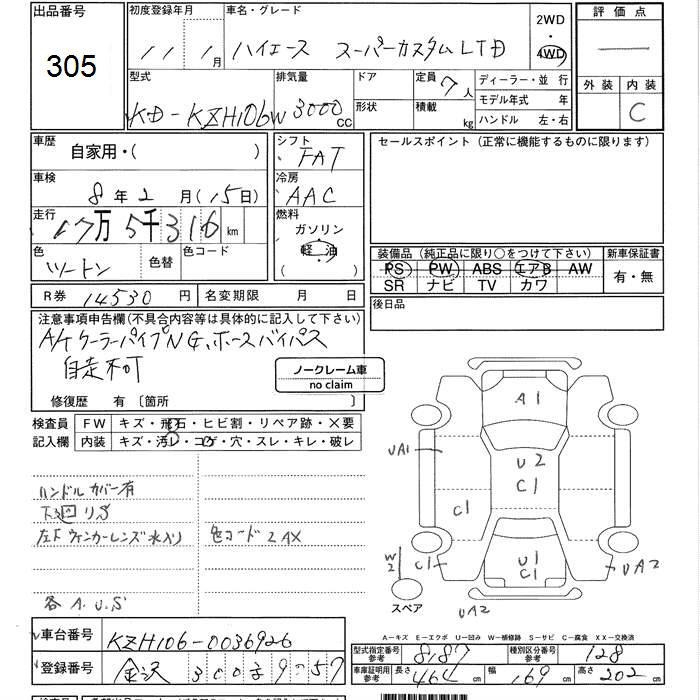 出品番号
305
初度登録年月
11年1月
車名・グレード
ハイエース スーパーカスタムLTD
2WD
・
4WD
評価点
外装 内装
C
型式
KD-KZH106W
排気量
3000cc
ドア
形状
定員
7人
積載
kg
ディーラー・並行
モデル年式 年
ハンドル 左・右
車歴
自家用・( )
車検
8年2月(15日)
走行
17万5千316km
色
ツートン
色替
色コード
シフト
FAT
冷房
AAC
燃料
ガソリン
軽油
( )
セールスポイント(正常に機能するものに限ります)
装備品(純正品に限り○をつけて下さい)
PS PW ABS エアB AW
SR ナビ TV カワ
新車保証書
有・無
R券 14530円
名変期限 月 日
後日品
注意事項申告欄(不具合内容等は具体的に記入して下さい)
A/Tクーラーパイプ NG、ホースバイパス
自走不可
ノークレーム車
no claim
修復歴 有 〔箇所 〕
検査員
記入欄
FW キズ・飛石・ヒビ割・リペア跡・X要
内装 キズ・汚レ・コゲ・穴・スレ・キレ・破レ
ハンドルカバー有
下廻りS
左F ウィンカーレンズ水入り
色コード 2AX
各A.U.S
A1
UA1
U2
C1
C1
W2
C1
U1
C1
UA2
UA2
スペア
A−キズ E−エクボ U−凹み W−補修跡 S−サビ C−腐食 XX−交換済
車台番号
KZH106-0036926
登録番号
金沢 300 9-57
型式指定番号
参考
8187
種別区分番号
参考
128
車庫証明用
参考
長さ 464cm
幅 169cm
高さ 202cm